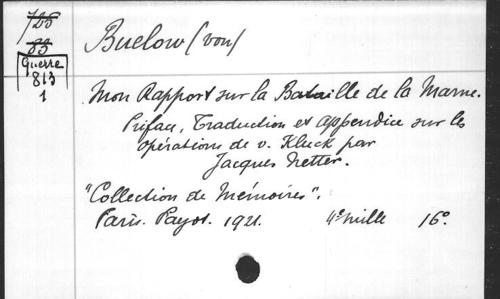 728
83
Guerre
813
1
Buelow (von)
Mon Rapport sur la Bataille de la Marne.
Préface, Traduction et appendice sur les
opérations de v. Kluck par
Jacques Netter.
"Collection de Mémoires".
Paris. Payot. 1921. 4e mille 16°.